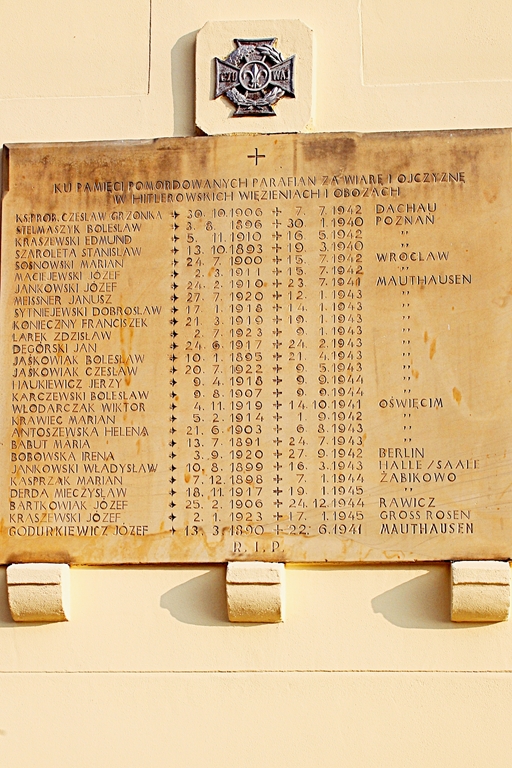 CZU WAJ
KU PAMIĘCI POMORDOWANYCH PARAFIAN ZA WIARĘ I OJCZYZNĘ
W HITLEROWSKICH WIĘZIENIACH I OBOZACH
KS.PROB. CZESŁAW GRZONKA ✶ 30.10.1906 + 7. 7.1942 DACHAU
STELMASZYK BOLESŁAW ✶ 3. 8. 1896 + 30. 1.1940 POZNAŃ
KRASZEWSKI EDMUND ✶ 5. 11.1910 + 16. 5.1942 "
SZAROLETA STANISŁAW ✶ 13.10.1893 + 19. 3.1940 "
SOSNOWSKI MARIAN ✶ 24. 7.1900 + 15. 7.1942 WROCŁAW
MACIEJEWSKI JÓZEF ✶ 2. 3.1911 + 15. 7.1942 "
JANKOWSKI JÓZEF ✶ 24. 2.1910 + 23. 7.1941 MAUTHAUSEN
MEISSNER JANUSZ ✶ 27. 7.1920 + 12. 1.1943 "
SYTNIEJEWSKI DOBROSŁAW ✶ 17. 1.1918 + 14. 1.1943 "
KONIECZNY FRANCISZEK ✶ 21. 3.1919 + 19. 1.1943 "
LAREK ZDZISŁAW ✶ 2. 7.1923 + 9. 1.1943 "
DEGÓRSKI JAN ✶ 24. 6.1917 + 24. 2.1943 "
JAŚKOWIAK BOLESŁAW ✶ 10. 1.1895 + 21. 4.1943 "
JAŚKOWIAK CZESŁAW ✶ 20. 7.1922 + 9. 5.1943 "
HAUKIEWICZ JERZY ✶ 9. 4.1918 + 9. 9.1944 "
KARCZEWSKI BOLESŁAW ✶ 9. 8.1907 + 9. 9.1944 "
WŁODARCZAK WIKTOR ✶ 4.11.1919 + 14.10.1941 OŚWIĘCIM
KRAWIEC MARIAN ✶ 5. 2.1914 + 1. 9.1942 "
ANTOSZEWSKA HELENA ✶ 21. 6.1903 + 6. 8.1943 "
BABUT MARIA ✶ 13. 7.1891 + 24. 7.1943 "
BOBOWSKA IRENA ✶ 3. 9.1920 + 27. 9.1942 BERLIN
JANKOWSKI WŁADYSŁAW ✶ 10. 8.1899 + 16. 3.1943 HALLE/SAALE
KASPRZAK MARIAN ✶ 7. 12.1898 + 7. 1.1944 ŻABIKOWO
DERDA MIECZYSŁAW ✶ 18. 11.1917 + 19. 1.1945 "
BARTKOWIAK JÓZEF ✶ 25. 2.1906 + 24.12.1944 RAWICZ
KRASZEWSKI JÓZEF ✶ 2. 1.1923 + 17. 1.1945 GROSS ROSEN
GODURKIEWICZ JÓZEF ✶ 13. 3.1890 + 22. 6.1941 MAUTHAUSEN
R. I. P.